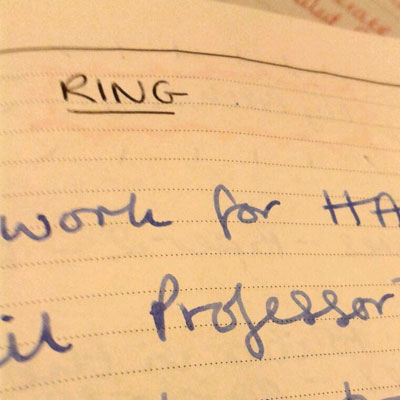 RING
work for HA
il Professor